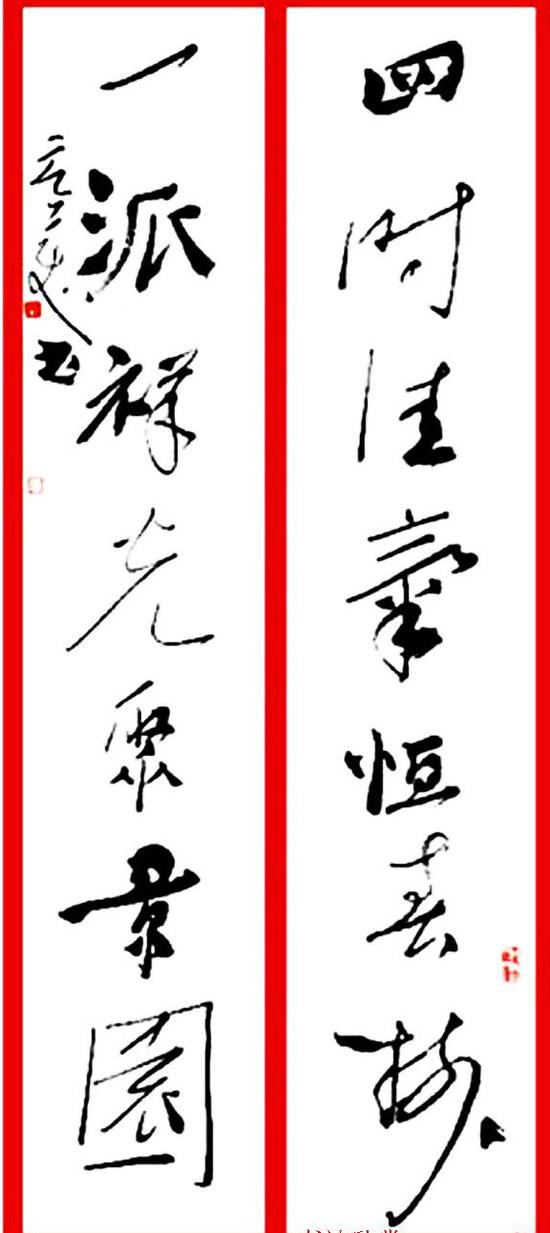 四时佳氣恒春树
一派祥光聚景園